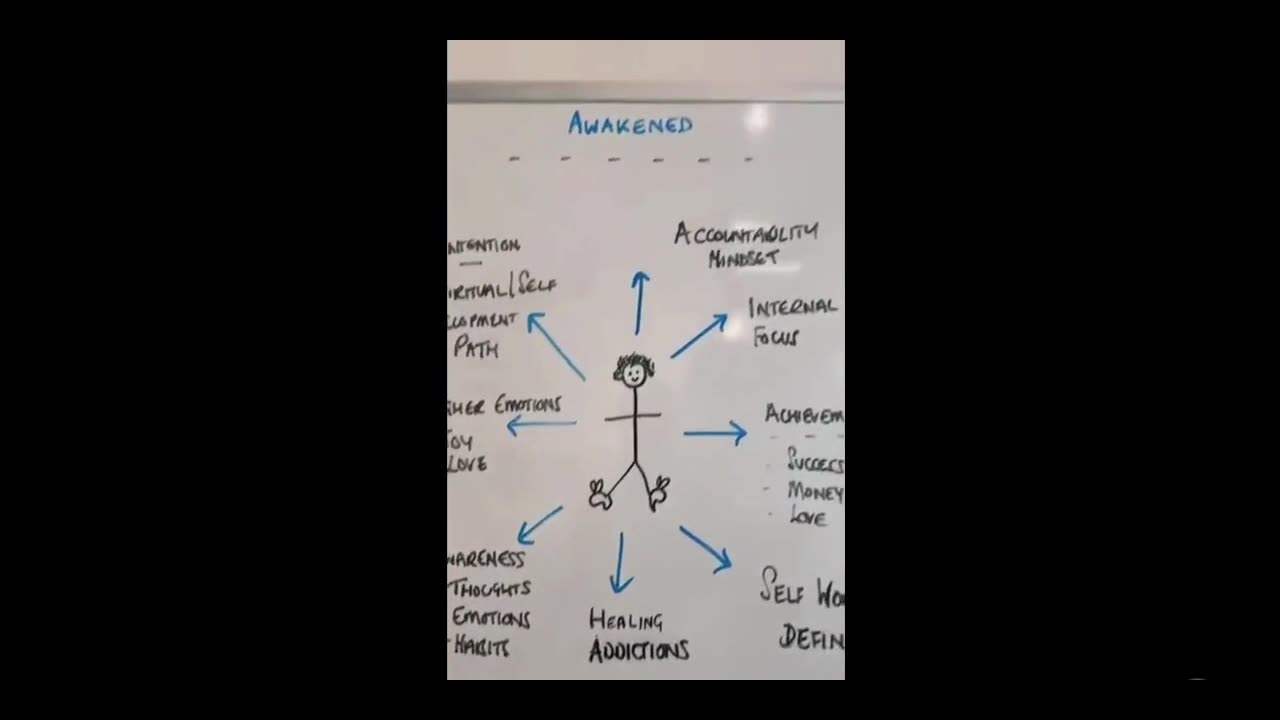 AWAKENED
- - - - - -
ACCOUNTABILITY
MINDSET
INTERNAL
FOCUS
ACHIEVEM
SUCCESS
- MONEY
- LOVE
SELF WO
DEFIN
HEALING
ADDICTIONS
WARENESS
THOUGHTS
EMOTIONS
HABITS
HER EMOTIONS
JOY
LOVE
NTENTION
IRITUAL/SELF
ELOPMENT
PATH